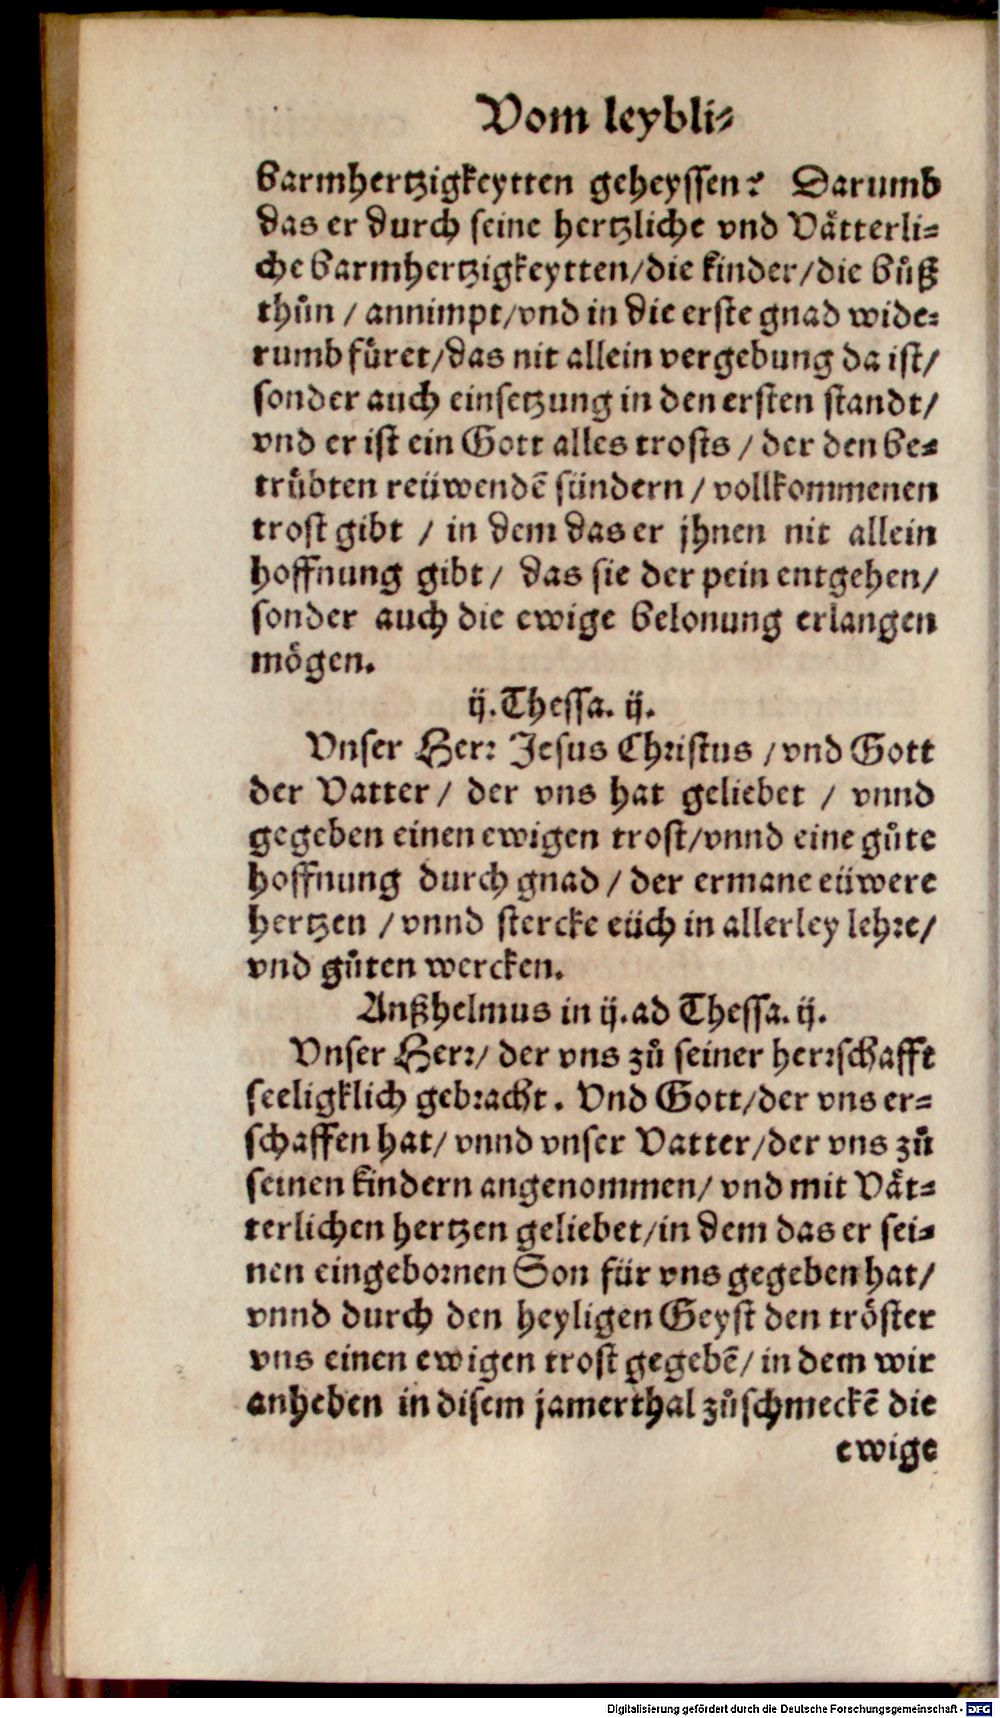 Vom leybli-
barmhertzigkeytten geheyssen? Darumb
das er durch seine hertzliche vnd Vätterli-
che barmhertzigkeytten/die kinder/die bůß
thůn / annimpt/vnd in die erste gnad wide-
rumb fůret/das nit allein vergebung da ist/
sonder auch einsetzung in den ersten standt/
vnd er ist ein Gott alles trosts / der den be-
trůbten reüwendē sündern / vollkommenen
trost gibt / in dem das er jhnen nit allein
hoffnung gibt/ das sie der pein entgehen/
sonder auch die ewige belonung erlangen
mögen.
ij.Thessa. ij.
Vnser Herr Jesus Christus /vnd Gott
der Vatter/ der vns hat geliebet / vnnd
gegeben einen ewigen trost/vnnd eine gůte
hoffnung durch gnad / der ermane eüwere
hertzen /vnnd stercke eüch in allerley lehre/
vnd gůten wercken.
Anßhelmus in ij.ad Thessa. ij.
Vnser Herr/ der vns zů seiner herrschafft
seeligklich gebracht. Vnd Gott/der vns er-
schaffen hat/ vnnd vnser Vatter/der vns zů
seinen kindern angenommen/ vnd mit Vät-
terlichen hertzen geliebet/in dem das er sei-
nen eingebornen Son für vns gegeben hat/
vnnd durch den heyligen Geyst den tröster
vns einen ewigen trost gegebē/ in dem wir
anheben in disem jamerthal zůschmeckē die
ewige
Digitalisierung gefördert durch die Deutsche Forschungsgemeinschaft - DFG